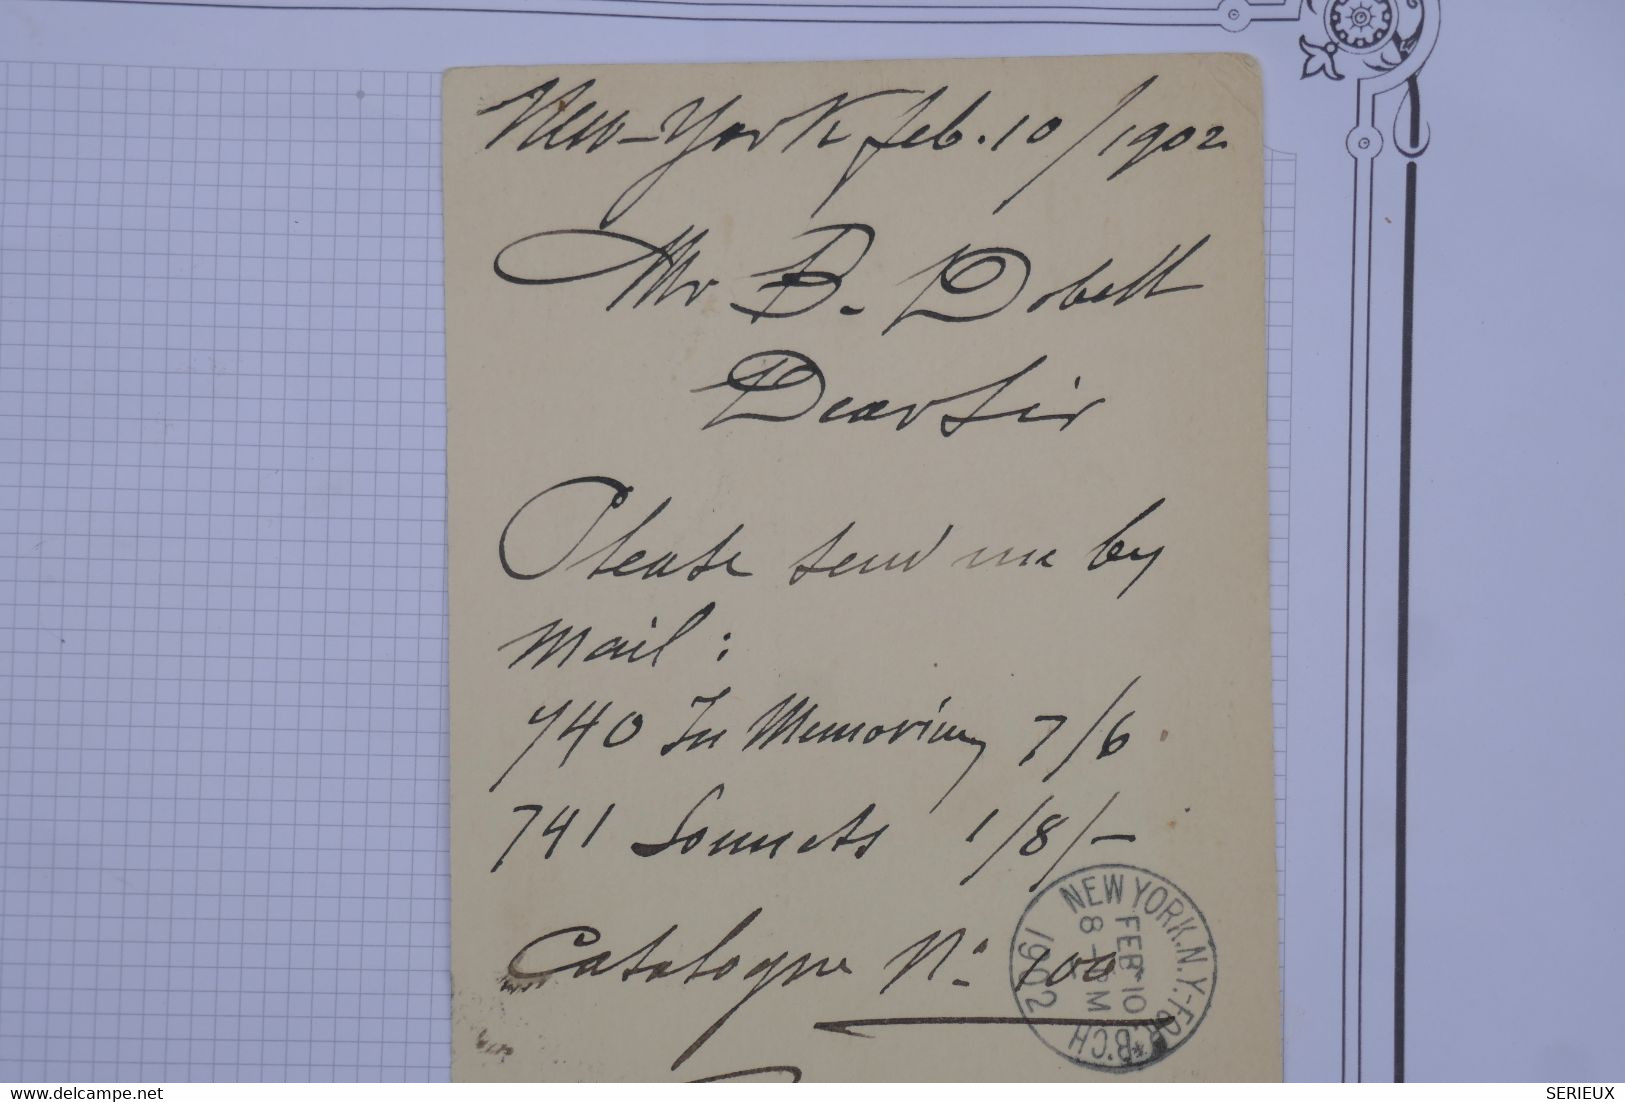 New-York feb. 10/1902
Mr B. Dobell
Dear Sir
Please send me by
Mail:
740 In Memoriam 7/6
741 Sonnets 1/8/-
Catalogue No. 100
NEW YORK. N.Y.-FOR. B'CH
FEB 10
8 - PM
1902
delcampe.net
SERIEUX